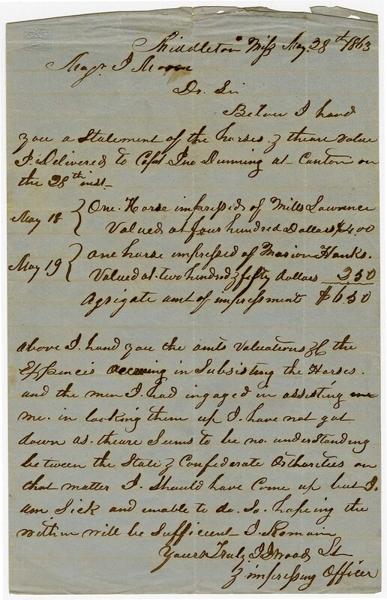 Middleton Miss May. 28th /1863
Majr. J Moore
Dr. Sir
Below I hand
you a Statement of the horses & theare value
I. delivered to Capt Jno Dunning at Canton on
the 28th inst—
May 18 { One. Horse impressed of Mills Lawrence
Valued at four hundred Dollars $400
May 19 { one horse impressed of Marion Hanks.
Valued at. two hundred & fifty dollars 250
Agrigate amt of impressment $650
above I. hand you the amts Valuations of the
Expencis accruing in Subsisting the Horses.
and the men I. had ingaged in assisting
me. in looking them up I. have not got
down as. theare Seams to be no. understanding
between the State & Confederate Othorities on
that matter I. Should have Come up but I.
am Sick and unable to do. So. hopeing the
within will be Sufficient I. Remain
Yours Truly. J J Woods Lt
& impressing Officer